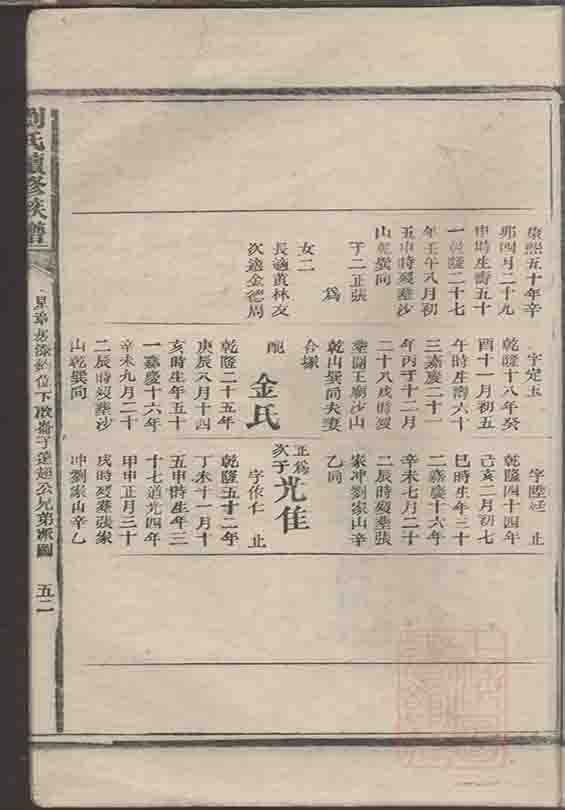 康熙五十年辛
卯四月二十九
申時生壽五十
一乾隆二十七
年壬午八月初
五申時歿葬沙
山乾巽向
子二正張
爲
女二
長適黃林友
次適金德周
字定玉
乾隆十八年癸
酉十一月初五
午時生壽六十
三嘉慶二十一
年丙子十二月
二十八戌時歿
葬關王廟沙山
乾山巽向夫妻
合塚
配
金氏
乾隆二十五年
庚辰八月十四
亥時生年五十
一嘉慶十六年
辛未九月二十
二辰時歿葬沙
山乾巽向
字陞廷 止
乾隆四十四年
己亥二月初七
巳時生年三十
二嘉慶十六年
辛未七月二十
二辰時歿葬張
家冲劉家山辛
乙向
正爲
次子
光佳
字依仁 止
乾隆五十二年
丁未十一月十
五申時生年三
十七道光四年
甲申正月三十
戌時歿葬張家
冲劉家山辛乙
劉氏續修族譜
位下啟
子達超公兄弟
圖
五二